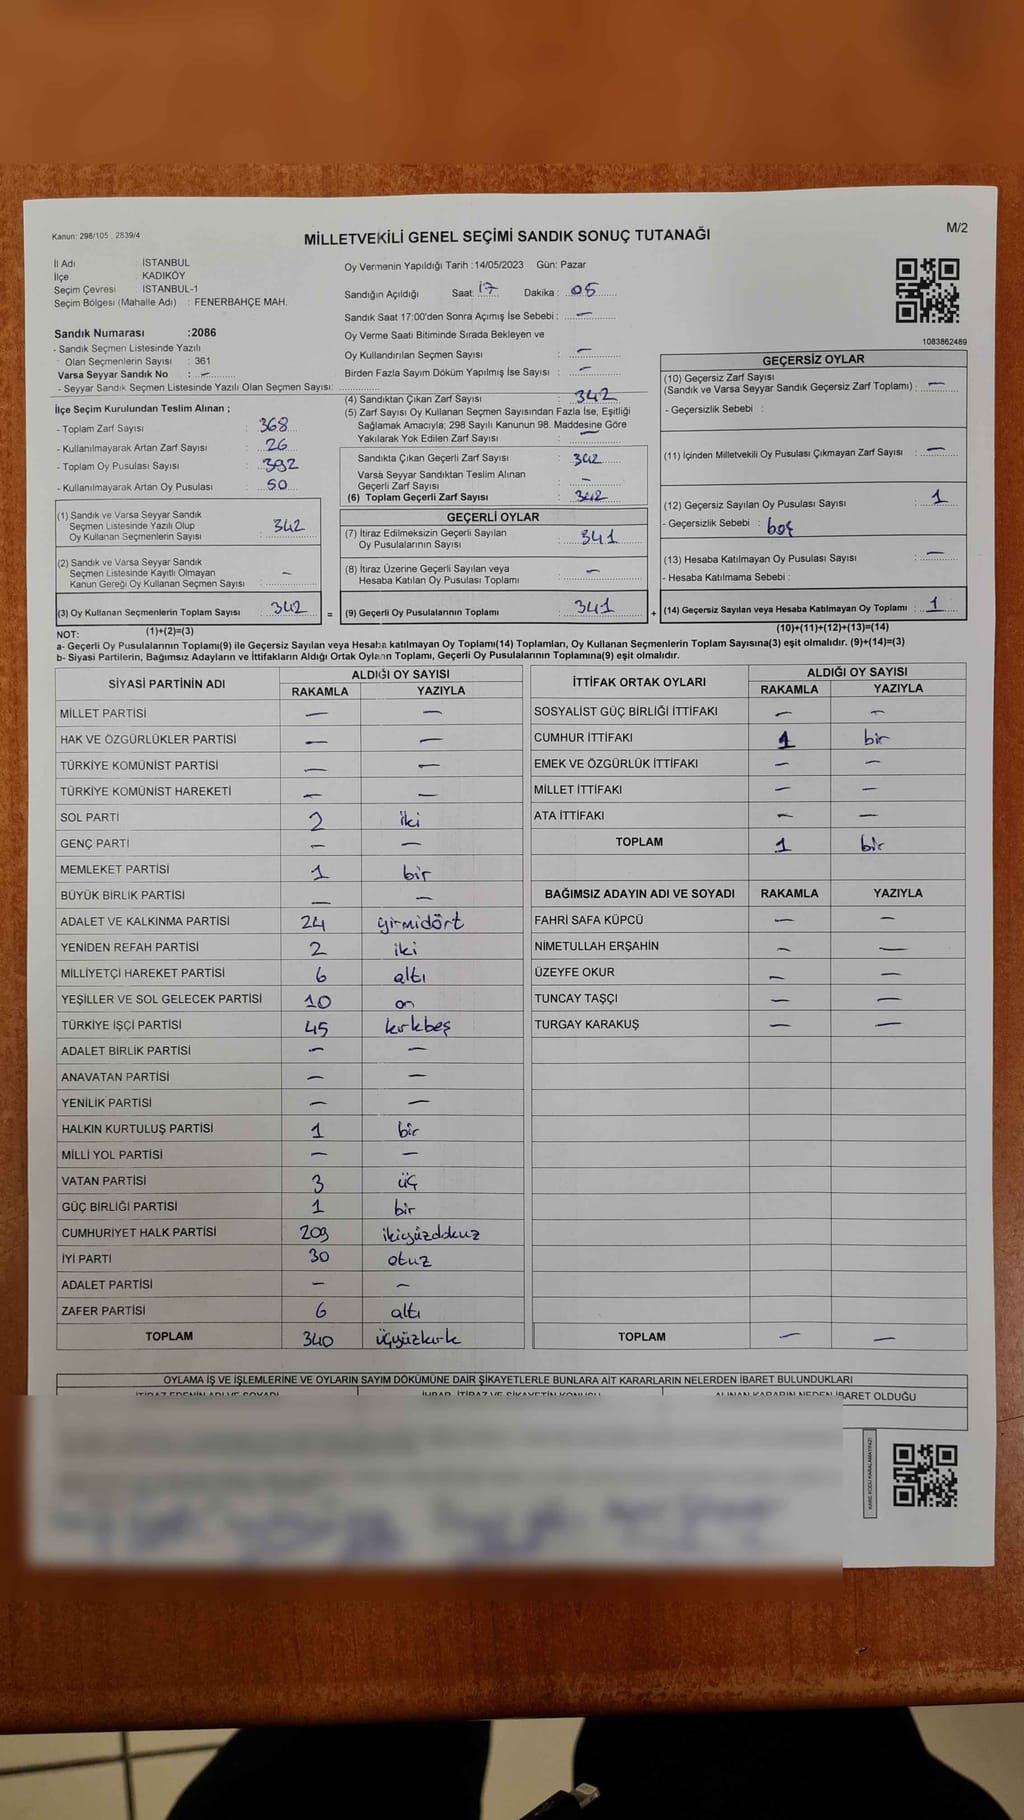 Kanun: 298/105 , 2839/4
MİLLETVEKİLİ GENEL SEÇİMİ SANDIK SONUÇ TUTANAĞI
M/2
İl Adı : İSTANBUL
İlçe : KADIKÖY
Seçim Çevresi : İSTANBUL-1
Seçim Bölgesi (Mahalle Adı) : FENERBAHÇE MAH.
Sandık Numarası :2086
- Sandık Seçmen Listesinde Yazılı
Olan Seçmenlerin Sayısı : 361
Varsa Seyyar Sandık No : —
- Seyyar Sandık Seçmen Listesinde Yazılı Olan Seçmen Sayısı:
İlçe Seçim Kurulundan Teslim Alınan ;
- Toplam Zarf Sayısı : 368
- Kullanılmayarak Artan Zarf Sayısı : 26
- Toplam Oy Pusulası Sayısı : 392
- Kullanılmayarak Artan Oy Pusulası : 50
(1) Sandık ve Varsa Seyyar Sandık
Seçmen Listesinde Yazılı Olup
Oy Kullanan Seçmenlerin Sayısı : 342
(2) Sandık ve Varsa Seyyar Sandık
Seçmen Listesinde Kayıtlı Olmayan
Kanun Gereği Oy Kullanan Seçmen Sayısı —
(3) Oy Kullanan Seçmenlerin Toplam Sayısı : 342 =
(1)+(2)=(3)
Oy Vermenin Yapıldığı Tarih :14/05/2023 Gün: Pazar
Sandığın Açıldığı Saat: 17 Dakika : 05
Sandık Saat 17:00'den Sonra Açımış İse Sebebi : —
Oy Verme Saati Bitiminde Sırada Bekleyen ve
Oy Kullandırılan Seçmen Sayısı : —
Birden Fazla Sayım Döküm Yapılmış İse Sayısı : —
(4) Sandıktan Çıkan Zarf Sayısı : 342
(5) Zarf Sayısı Oy Kullanan Seçmen Sayısından Fazla İse, Eşitliği
Sağlamak Amacıyla; 298 Sayılı Kanunun 98. Maddesine Göre
Yakılarak Yok Edilen Zarf Sayısı : —
Sandıkta Çıkan Geçerli Zarf Sayısı : 342
Varsa Seyyar Sandıktan Teslim Alınan
Geçerli Zarf Sayısı : —
(6) Toplam Geçerli Zarf Sayısı : 342
GEÇERLİ OYLAR
(7) İtiraz Edilmeksizin Geçerli Sayılan
Oy Pusulalarının Sayısı : 341
(8) İtiraz Üzerine Geçerli Sayılan veya
Hesaba Katılan Oy Pusulası Toplamı : —
(9) Geçerli Oy Pusulalarının Toplamı : 341 +
1083862489
GEÇERSİZ OYLAR
(10) Geçersiz Zarf Sayısı
(Sandık ve Varsa Seyyar Sandık Geçersiz Zarf Toplamı) : —
- Geçersizlik Sebebi :
(11) İçinden Milletvekili Oy Pusulası Çıkmayan Zarf Sayısı : —
(12) Geçersiz Sayılan Oy Pusulası Sayısı : 1
- Geçersizlik Sebebi : boş
(13) Hesaba Katılmayan Oy Pusulası Sayısı : —
- Hesaba Katılmama Sebebi :
(14) Geçersiz Sayılan veya Hesaba Katılmayan Oy Toplamı : 1
(10)+(11)+(12)+(13)=(14)
NOT:
a- Geçerli Oy Pusulalarının Toplamı(9) ile Geçersiz Sayılan veya Hesaba katılmayan Oy Toplamı(14) Toplamları, Oy Kullanan Seçmenlerin Toplam Sayısına(3) eşit olmalıdır. (9)+(14)=(3)
b- Siyasi Partilerin, Bağımsız Adayların ve İttifakların Aldığı Ortak Oyların Toplamı, Geçerli Oy Pusulalarının Toplamına(9) eşit olmalıdır.
SİYASİ PARTİNİN ADI ALDIĞI OY SAYISI
RAKAMLA YAZIYLA
MİLLET PARTİSİ — —
HAK VE ÖZGÜRLÜKLER PARTİSİ — —
TÜRKİYE KOMÜNİST PARTİSİ — —
TÜRKİYE KOMÜNİST HAREKETİ — —
SOL PARTİ 2 iki
GENÇ PARTİ — —
MEMLEKET PARTİSİ 1 bir
BÜYÜK BİRLİK PARTİSİ — —
ADALET VE KALKINMA PARTİSİ 24 yirmidört
YENİDEN REFAH PARTİSİ 2 iki
MİLLİYETÇİ HAREKET PARTİSİ 6 altı
YEŞİLLER VE SOL GELECEK PARTİSİ 10 on
TÜRKİYE İŞÇİ PARTİSİ 45 kırkbeş
ADALET BİRLİK PARTİSİ — —
ANAVATAN PARTİSİ — —
YENİLİK PARTİSİ — —
HALKIN KURTULUŞ PARTİSİ 1 bir
MİLLİ YOL PARTİSİ — —
VATAN PARTİSİ 3 üç
GÜÇ BİRLİĞİ PARTİSİ 1 bir
CUMHURİYET HALK PARTİSİ 209 ikiyüzdokuz
İYİ PARTİ 30 otuz
ADALET PARTİSİ — —
ZAFER PARTİSİ 6 altı
TOPLAM 340 üçyüzkırk
İTTİFAK ORTAK OYLARI ALDIĞI OY SAYISI
RAKAMLA YAZIYLA
SOSYALİST GÜÇ BİRLİĞİ İTTİFAKI — —
CUMHUR İTTİFAKI 1 bir
EMEK VE ÖZGÜRLÜK İTTİFAKI — —
MİLLET İTTİFAKI — —
ATA İTTİFAKI — —
TOPLAM 1 bir
BAĞIMSIZ ADAYIN ADI VE SOYADI RAKAMLA YAZIYLA
FAHRİ SAFA KÜPCÜ — —
NİMETULLAH ERŞAHİN — —
ÜZEYFE OKUR — —
TUNCAY TAŞÇI — —
TURGAY KARAKUŞ — —
TOPLAM — —
OYLAMA İŞ VE İŞLEMLERİNE VE OYLARIN SAYIM DÖKÜMÜNE DAİR ŞİKAYETLERLE BUNLARA AİT KARARLARIN NELERDEN İBARET BULUNDUKLARI
İTİRAZ EDENİN ADI VE SOYADI İHBAR, İTİRAZ VE ŞİKAYETİN KONUSU ALINAN KARARIN NEDEN İBARET OLDUĞU
KARE KODU KARALAMAYINIZ!